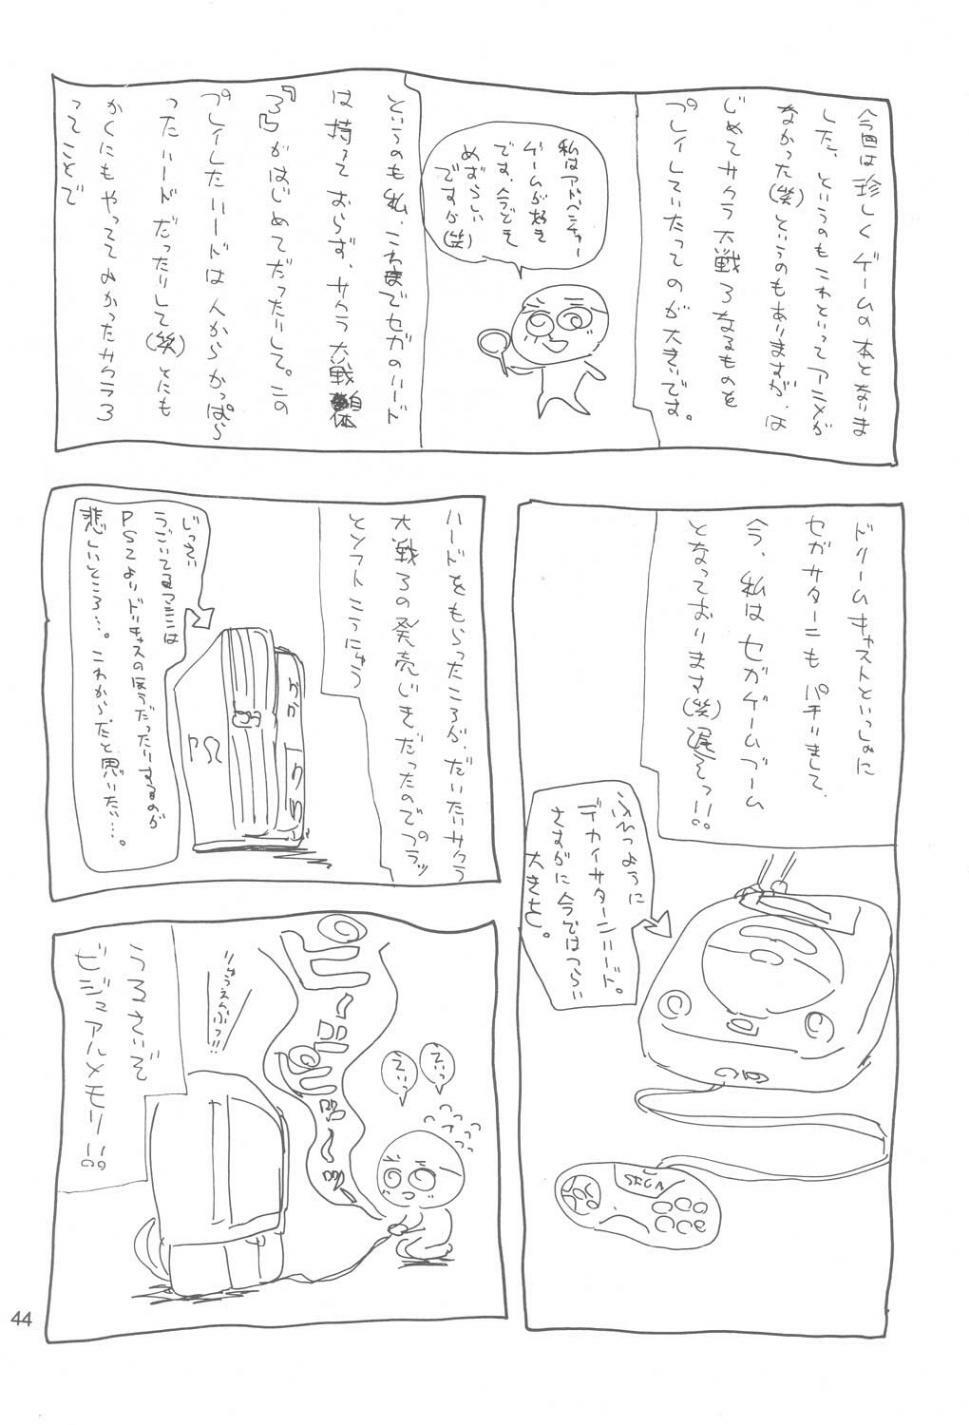 今回は珍しくゲームの本となりま
した、というのもこれといってアニメが
なかった(笑)というのもありますが、は
じめてサクラ大戦3なるものを
プレイしていたってのが大きいです。
私はアドベンチャー
ゲームが好き
です、今どき
めずらしい
ですが(笑)
というのも私、これまでセガのハード
は持っておらず、サクラ大戦自体
『3』がはじめてだったりして。この
プレイしたハードは人からかっぱら
ったハードだったりして(笑)とにも
かくにもやっててよかったサクラ3
ってことで
ドリームキャストといっしょに
セガサターンもパチりまして、
今、私はセガゲームブーム
となっております(笑)遅えっ!!
ふつように
デカイサターンハード。
さすがに今ではつらい
大きさ。
SEGA
ハードをもらったころが、だいたいサクラ
大戦3の発売じきだったのでプラッ
とソフトこうにゅう
じっさい
うごいてるマシンは
PS2よりドリキャスのほうだったりするのが
悲しいところ…。これからだと思いたい…。
PS2
ピーーー
うるさいぞ
ビジュアルメモリ!!
44